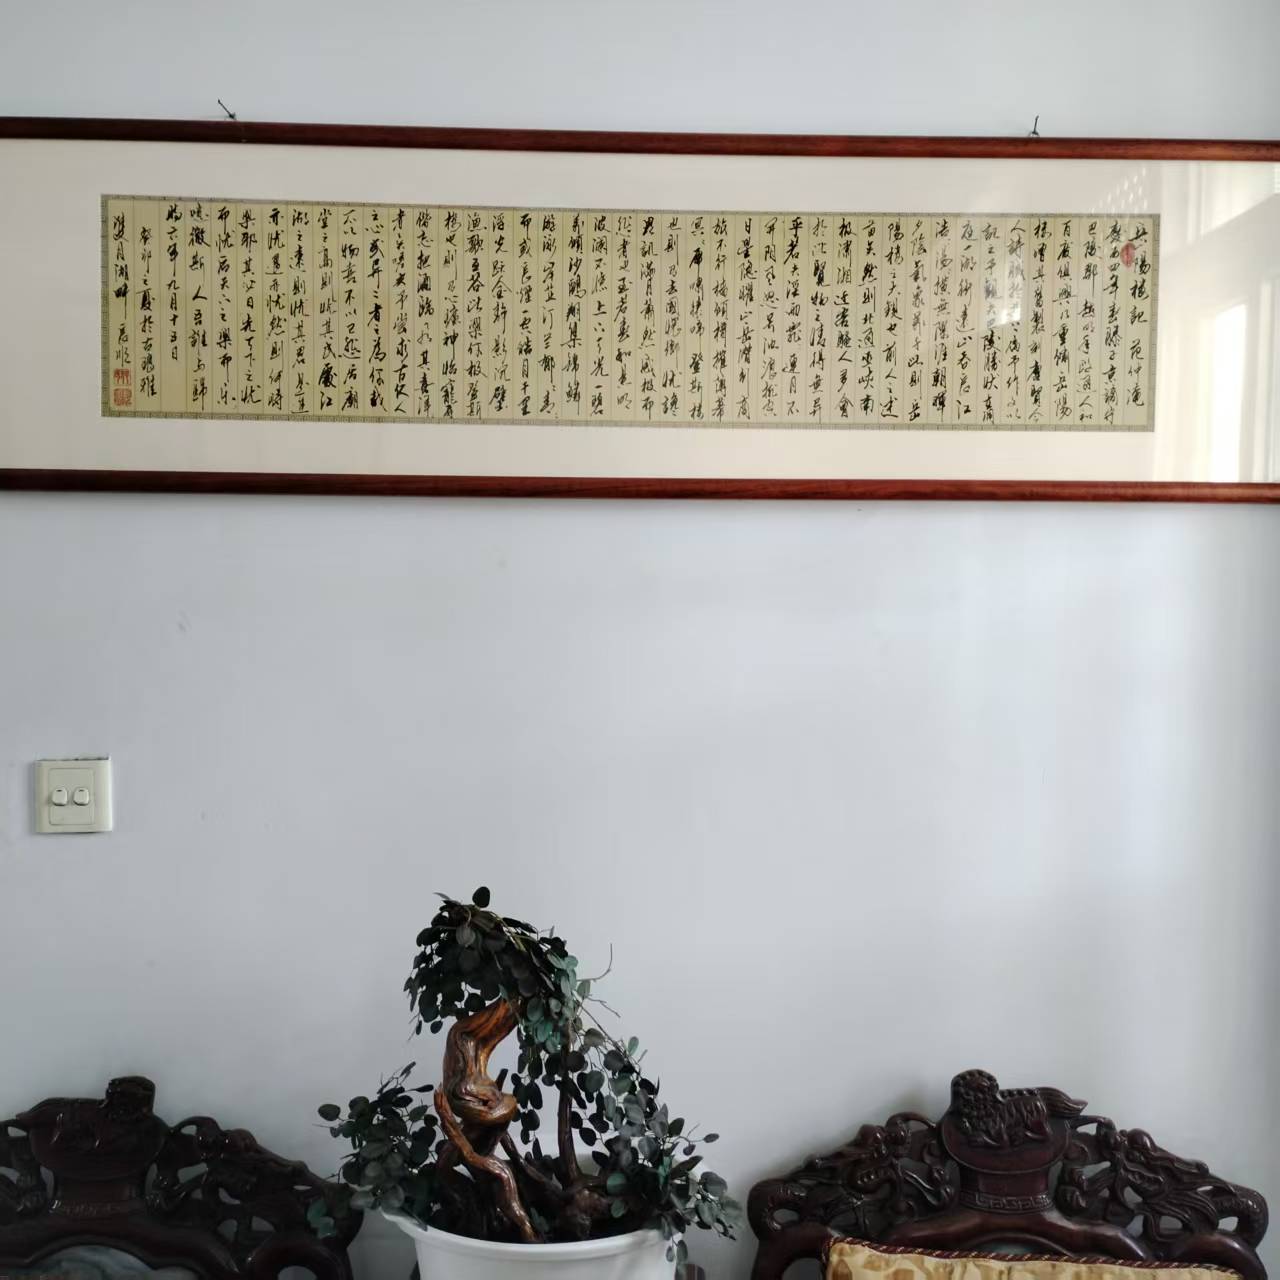 岳陽樓記 范仲淹
慶曆四年春滕子京謫守
巴陵郡越明年政通人和
百廢俱興乃重修岳陽
樓增其舊製刻唐賢今
人詩賦於其上屬予作文以
記之予觀夫巴陵勝狀在洞
庭一湖銜遠山吞長江
浩浩湯湯橫無際涯朝暉
夕陰氣象萬千此則岳
陽樓之大觀也前人之述
備矣然則北通巫峽南
極瀟湘遷客騷人多會
於此覽物之情得無異
乎若夫淫雨霏霏連月不
開陰風怒號濁浪排空
日星隱曜山岳潛形商
旅不行檣傾楫摧薄暮
冥冥虎嘯猿啼登斯樓
也則有去國懷鄉憂讒
畏譏滿目蕭然感極而
悲者也至若春和景明
波瀾不驚上下天光一碧
萬頃沙鷗翔集錦鱗
游泳岸芷汀蘭郁郁青青
而或長煙一空皓月千里
浮光躍金靜影沉璧
漁歌互答此樂何極登斯
樓也則有心曠神怡寵辱
偕忘把酒臨風其喜洋洋
者矣嗟夫予嘗求古仁人
之心或異二者之為何哉
不以物喜不以己悲居廟
堂之高則憂其民處江
湖之遠則憂其君是進
亦憂退亦憂然則何時
樂耶其必曰先天下之憂
而憂後天下之樂而樂乎
噫微斯人吾誰與歸
時六年九月十五日
癸卯之夏於古
雙月湖畔